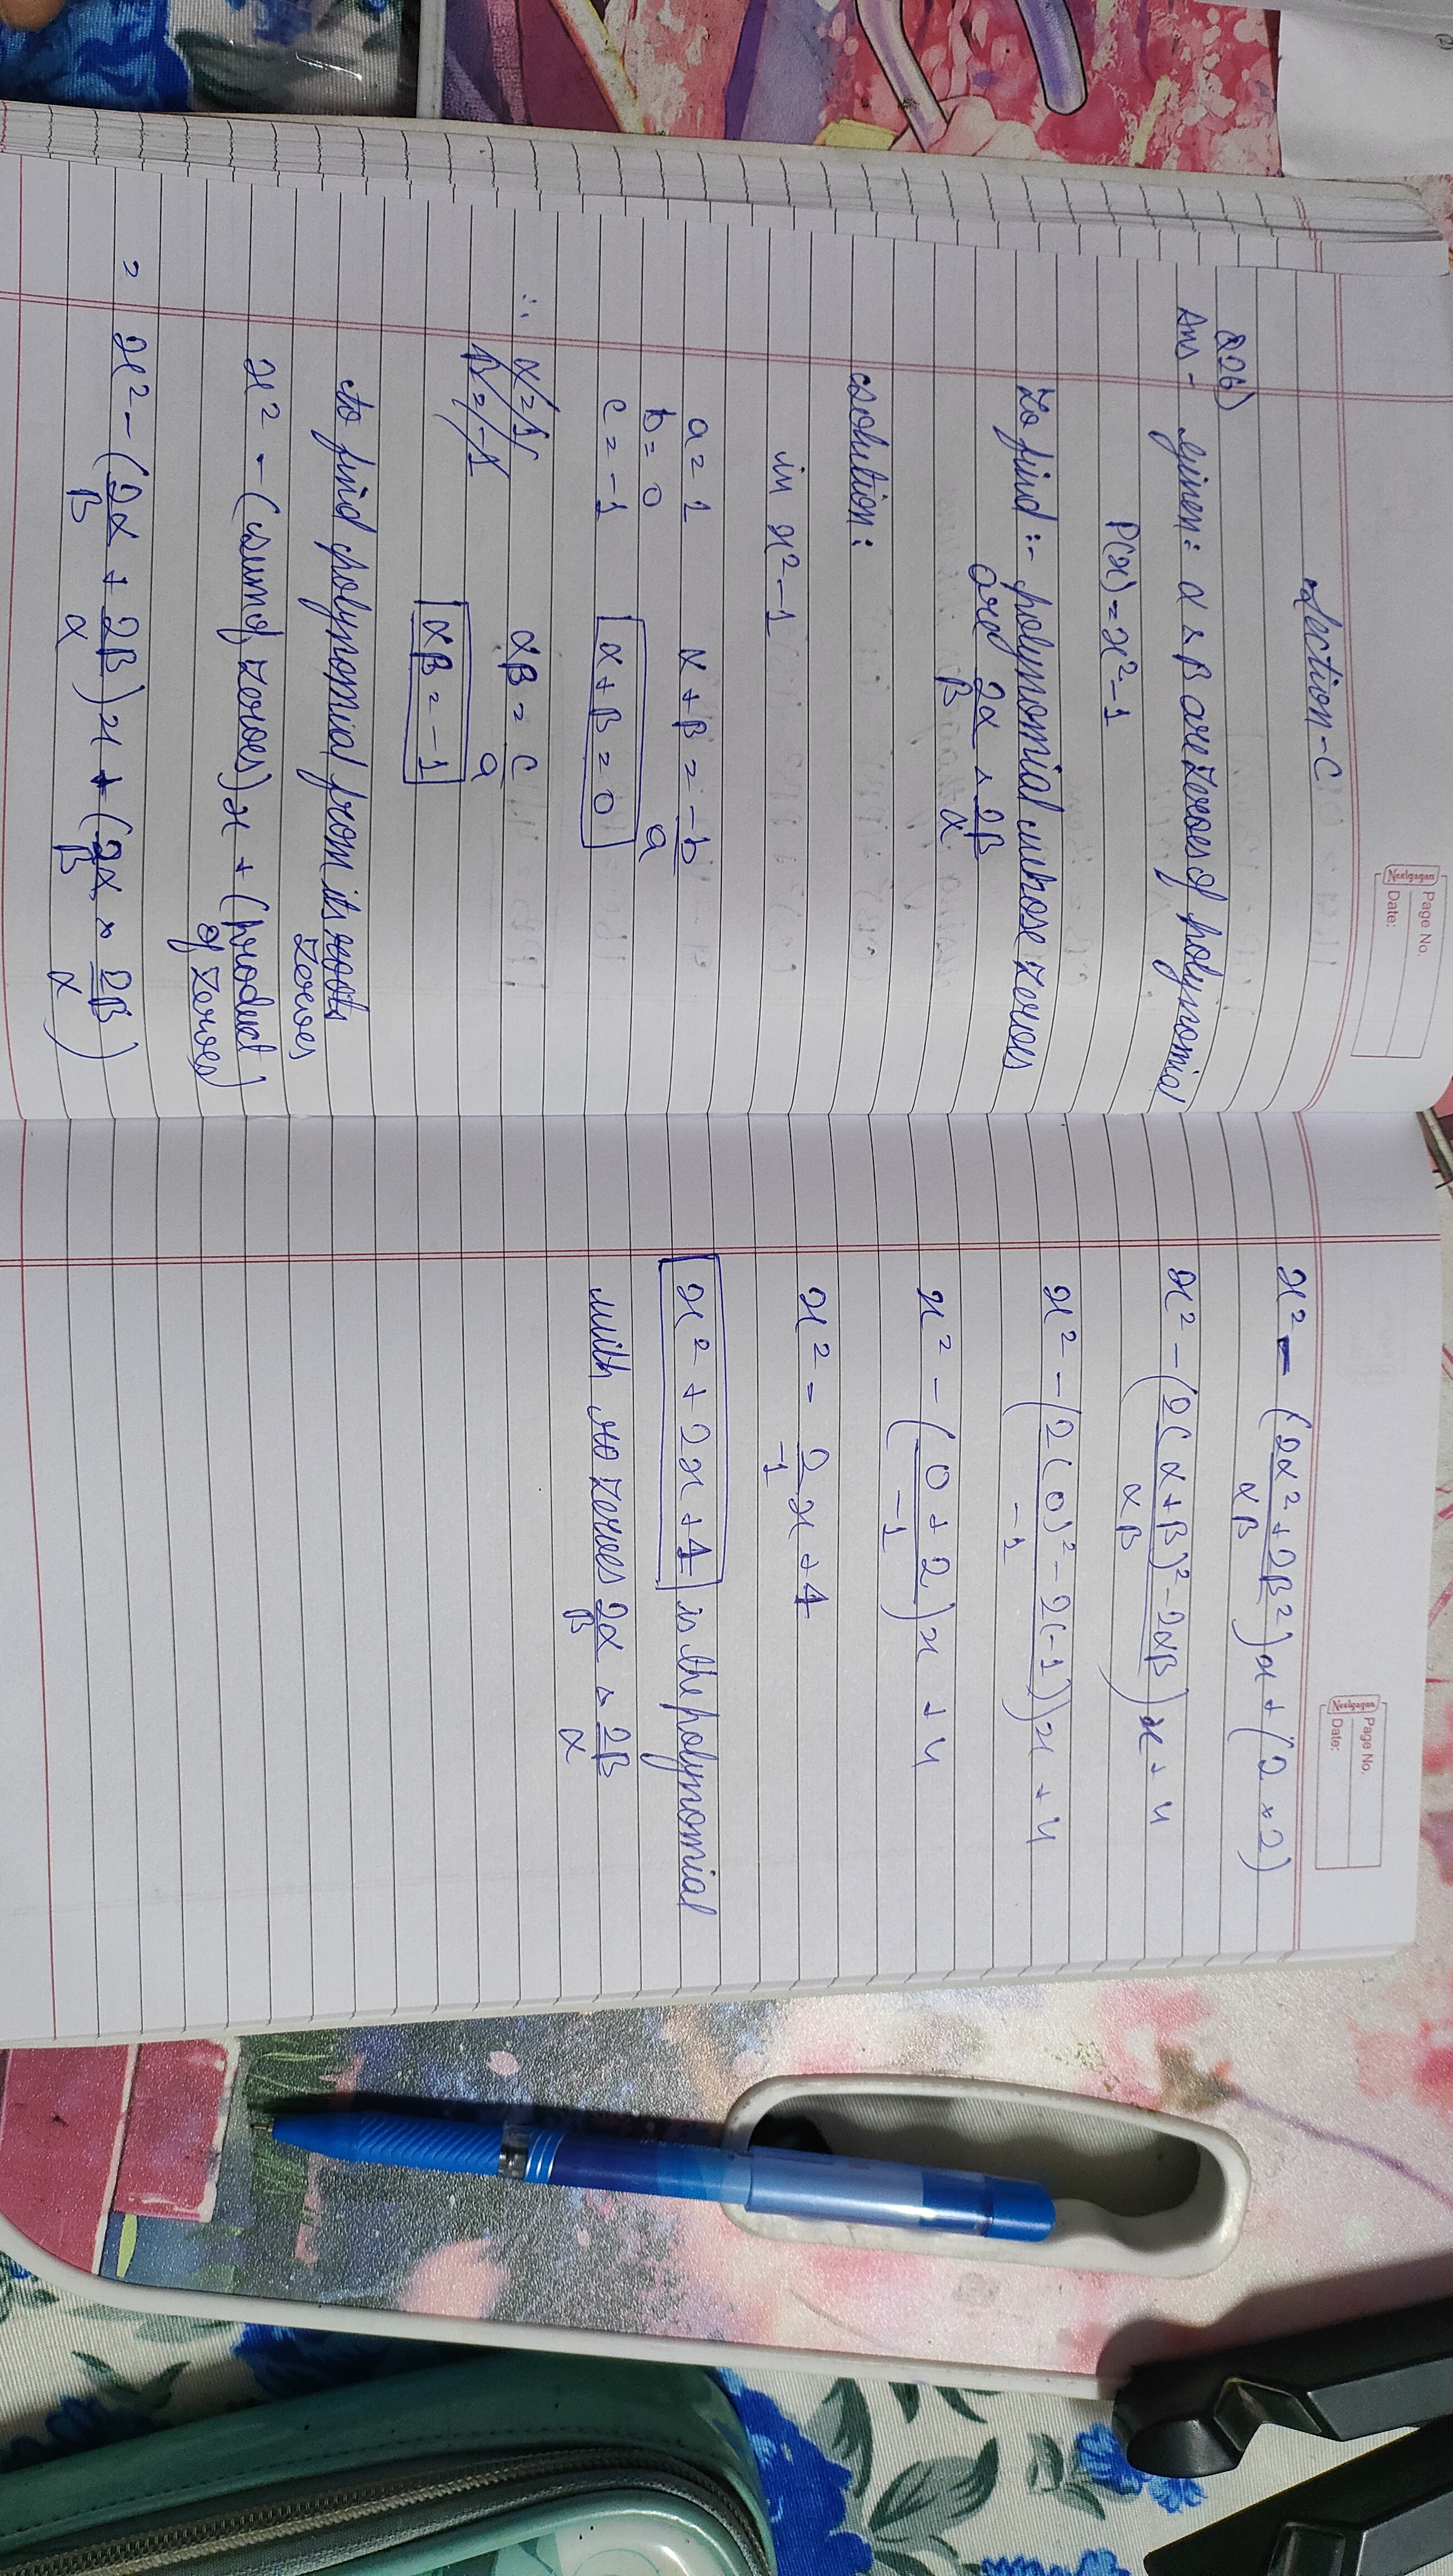 Neelgagan
Page No.
Date:
Section - C
Q26)
Ans - given: α & β are zeroes of polynomial
P(x) = x² - 1
To find :- polynomial whose zeroes
are 2α/β & 2β/α
solution:
in x² - 1
a = 1    α + β = -b/a
b = 0
c = -1    α + β = 0
∴ α = 1    αβ = c/a
β = -1    αβ = -1
to find polynomial from its roots
zeroes
x² - (sum of zeroes)x + (product
of zeroes)
= x² - (2α/β + 2β/α)x + (2α/β × 2β/α)
Neelgagan
Page No.
Date:
x² - (2α² + 2β²/αβ)x + (2 × 2)
x² - (2(α+β)² - 2αβ/αβ)x + 4
x² - (2(0)² - 2(-1)/-1)x + 4
x² - (0 + 2/-1)x + 4
x² - 2/-1 x + 4
x² + 2x + 4 is the polynomial
with zeroes 2α/β & 2β/α